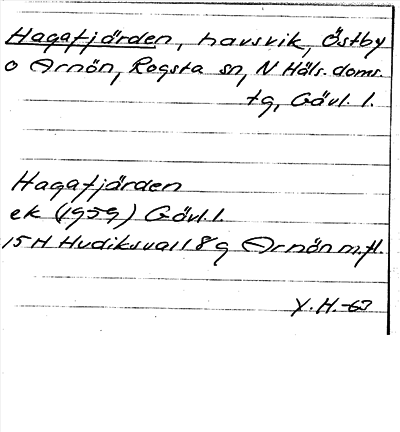 Hagafjärden, havsvik, Östby
o Arnön, Rogsta sn, N Häls. doms.
tg, Gävl. l.
Hagafjärden
ek (1959) Gävl. l.
15 H Hudiksvall 8 g Arnön m. fl.
Y. H. -63